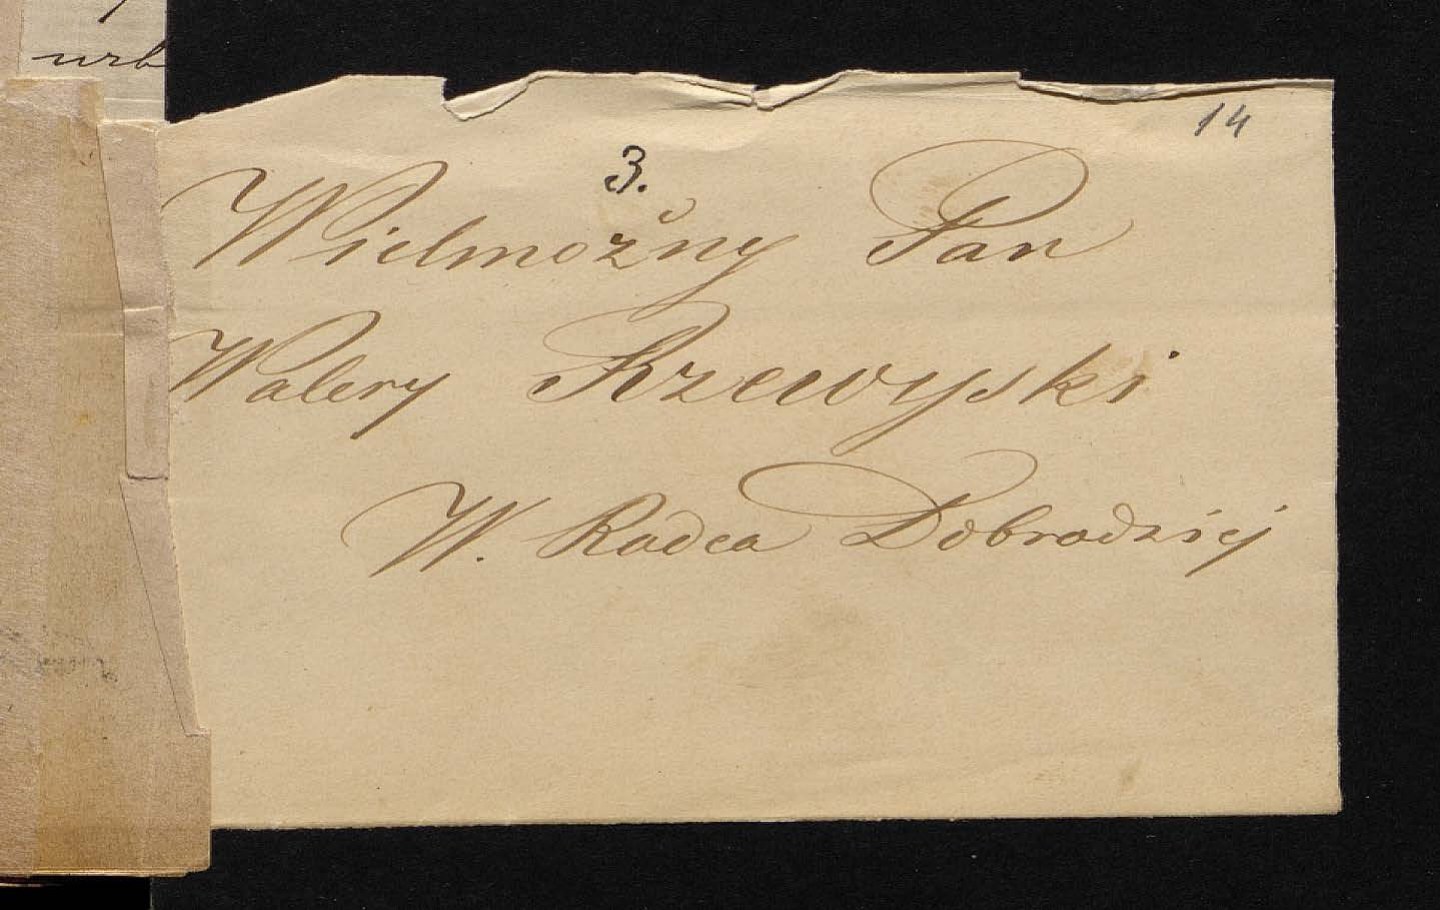 urb
14
3.
Wielmožny Pan
Walery Rzewyski
W. Radca Dobrodziej